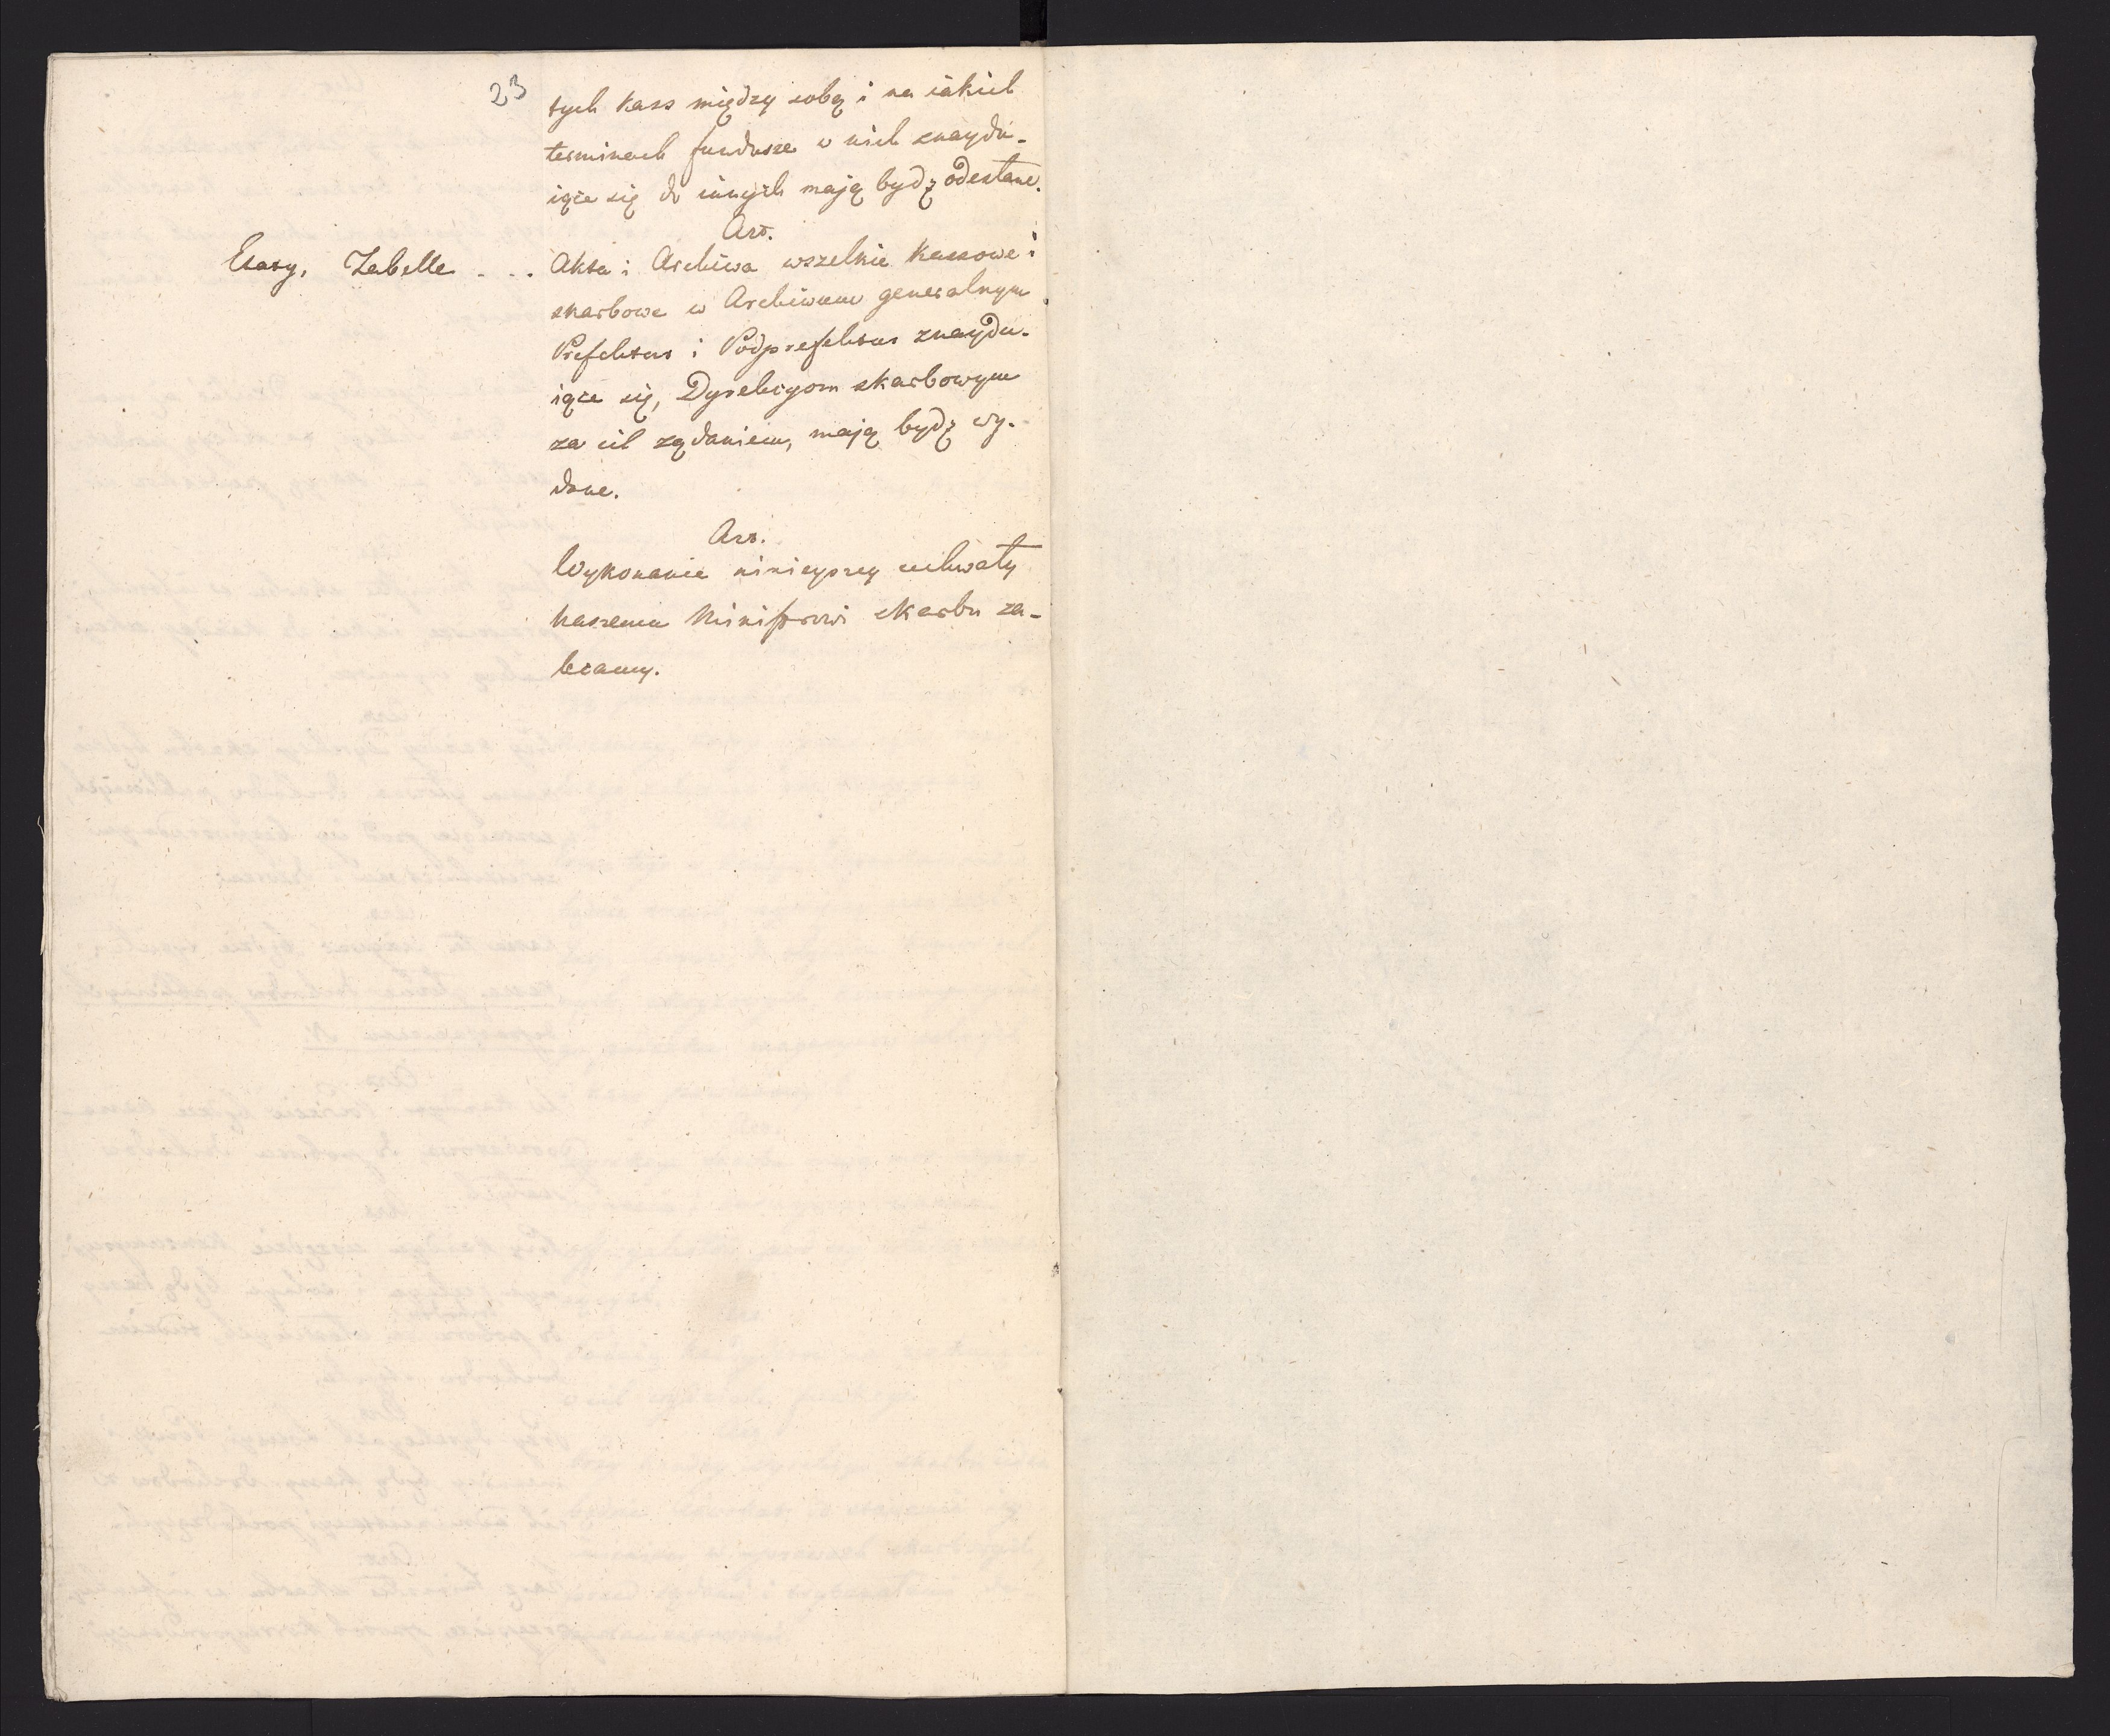 23
tych kass między sobą i na iakich
terminach fundusze w nich znaydu-
iące się do innych mają bydź odesłane.
Art.
Etaty, Tabelle . . .
Akta i Archiwa wszelkie kassowe i
skarbowe w Archiwum generalnym
Prefektur i Podprefektur znaydu-
iące się, Dyrekcyom skarbowym
za ich żądaniem, mają bydź wy-
dane.
Art.
Wykonanie ninieyszey uchwały
naszemu Ministrowi skarbu za-
lecamy.